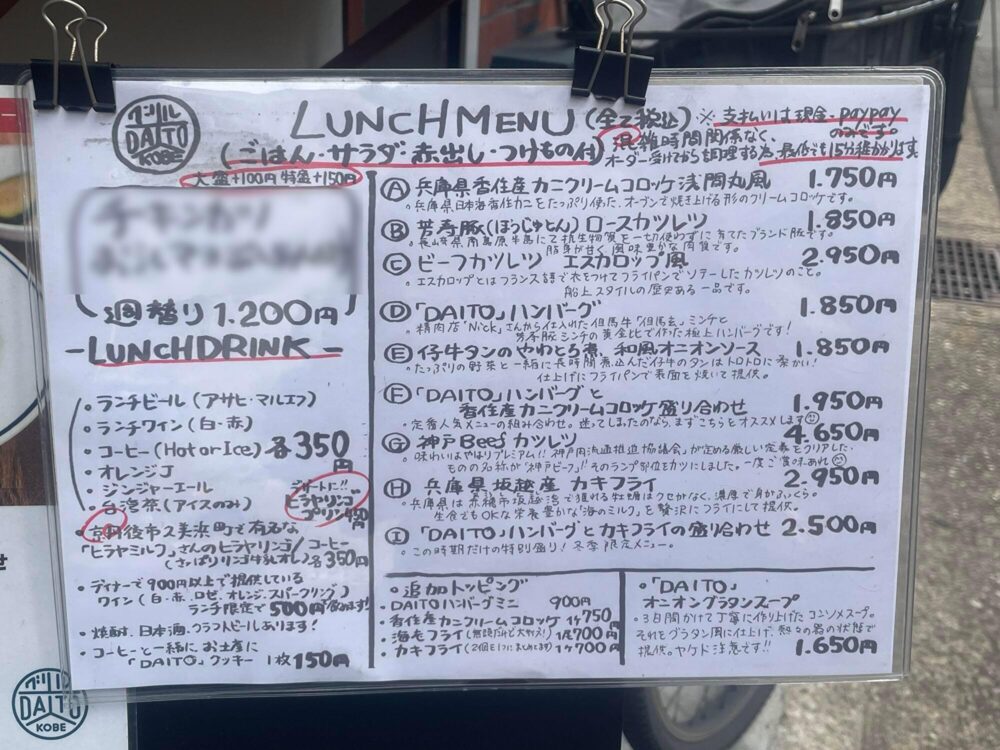 グリル
DAITO
KOBE
LUNCH MENU (全て税込)
※支払いは現金・PayPay
のみです。
(ごはん・サラダ・赤出し・つけもの付)
混雑時間関係なく、
オーダー受けてから調理する為、最低でも15分経かります。
大盛+100円 特盛+150円
週替り 1.200円
-LUNCH DRINK-
・ランチビール (アサヒ・マルエフ)
・ランチワイン (白・赤)
・コーヒー (Hot or Ice) 各350円
・オレンジJ
・ジンジャーエール
・台湾茶 (アイスのみ)
デザートに!!
ヒラヤリンゴ
プリン 450円
・京丹後市久美浜町で有名な
「ヒラヤミルク」さんのヒラヤリンゴ/コーヒー
(さっぱりリンゴ牛乳オレ) 各350円
・ディナーで900円以上で提供している
ワイン (白・赤、ロゼ、オレンジ、スパークリング)
ランチ限定で500円
・焼酎、日本酒、クラフトビールあります!
・コーヒーと一緒に お土産に
「DAITO」クッキー 1枚150円
Ⓐ 兵庫県香住産カニクリームコロッケ浅間丸風 1.750円
。兵庫県日本海香住カニをたっぷり使った、オーブンで焼き上げる形のクリームコロッケです。
Ⓑ 芳寿豚(ほうじゅとん) ロースカツレツ 1.850円
。長崎県南島原半島にて抗生物質を一切使わずに育てたブランド豚です。
脂身が甘く風味豊かな肉質です。
Ⓒ ビーフカツレツ エスカロップ風 2.950円
。エスカロップとはフランス語で衣をつけてフライパンでソテーしたカツレツのこと。
船上スタイルの歴史ある一品です。
Ⓓ 「DAITO」ハンバーグ 1.850円
。精肉店「Nick」さんから仕入れた但馬牛「但馬玄」ミンチと
芳寿豚ミンチの黄金比で作った極上ハンバーグです!
Ⓔ 仔牛タンのやわとろ煮、和風オニオンソース 1.850円
。たっぷりの野菜と一緒に長時間煮込んだ仔牛のタンはトロトロに柔かい!
仕上げにフライパンで表面を焼いて提供。
Ⓕ 「DAITO」ハンバーグと
香住産カニクリームコロッケ盛り合わせ 1.950円
。定番人気メニューの組み合わせ。迷ってしまったのなら、まずこちらをオススメします
Ⓖ 神戸Beef カツレツ 4.650円
。味わいはやはりプレミアム!!「神戸肉流通推進協議会」が定める厳しい定義をクリアした、
ものの名称が"神戸ビーフ"!!そのランプ部位をカツにしました。一度ご賞味あれ
Ⓗ 兵庫県 坂越産 カキフライ 2.950円
。兵庫県は赤穂市坂越湾で獲れる牡蠣はクセがなく、濃厚で身がふっくら。
生食でもOKな栄養豊かな「海のミルク」を贅沢にフライにして提供。
Ⓘ 「DAITO」ハンバーグとカキフライの盛り合わせ 2.500円
。この時期だけの特別盛り!冬季限定メニュー。
。追加トッピング
・DAITOハンバーグミニ 900円
・香住産カニクリームコロッケ 1ケ750円
・海老フライ (無頭だけど大サイズ!) 1尾700円
・カキフライ (2個を1つにまとめてます) 1ケ700円
。「DAITO」
オニオングラタンスープ
。3日間かけて丁寧に作り上げたコンソメスープ。
それをグラタン風に仕上げ、熱々の器の状態で
提供。ヤケド注意です!! 1.650円
グリル
DAITO
KOBE